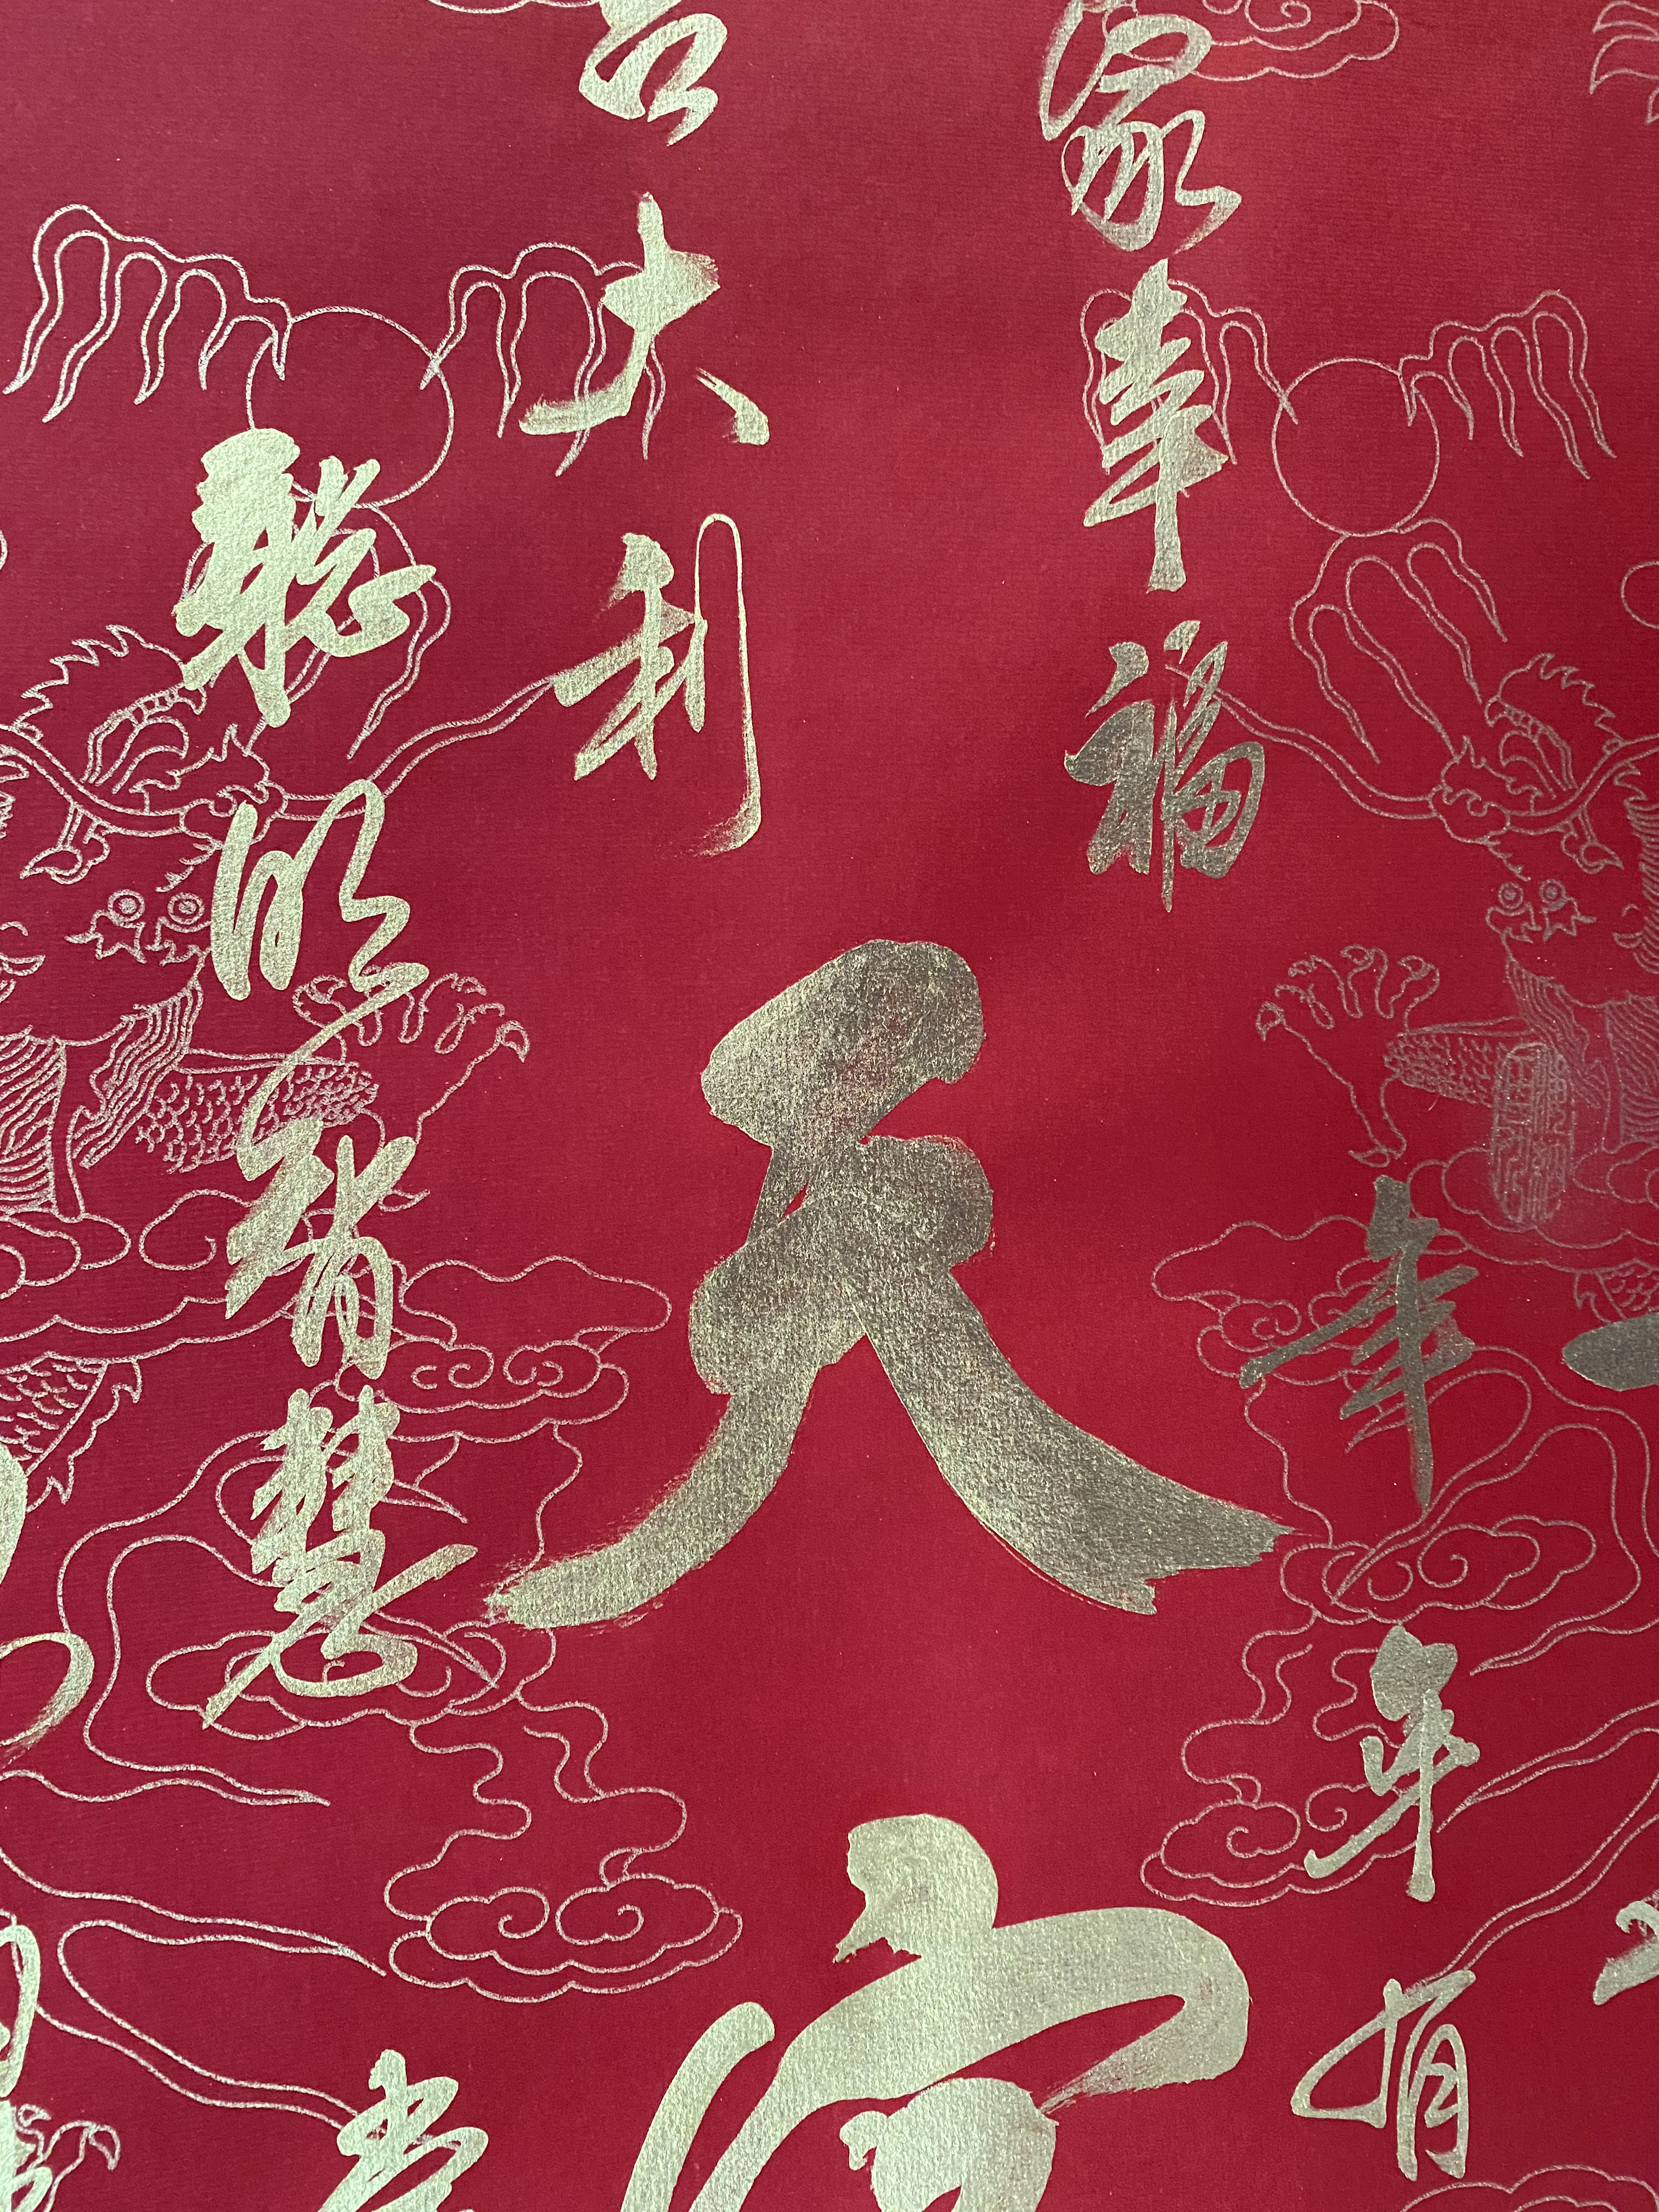 年年有
家幸福
天
吉大利
聪明智慧